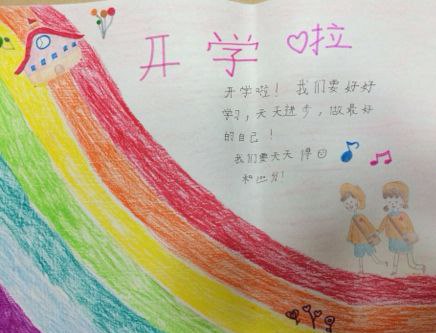 开学啦
开学啦！我们要好好
学习，天天进步，做最好
的自己！
我们要天天得
和